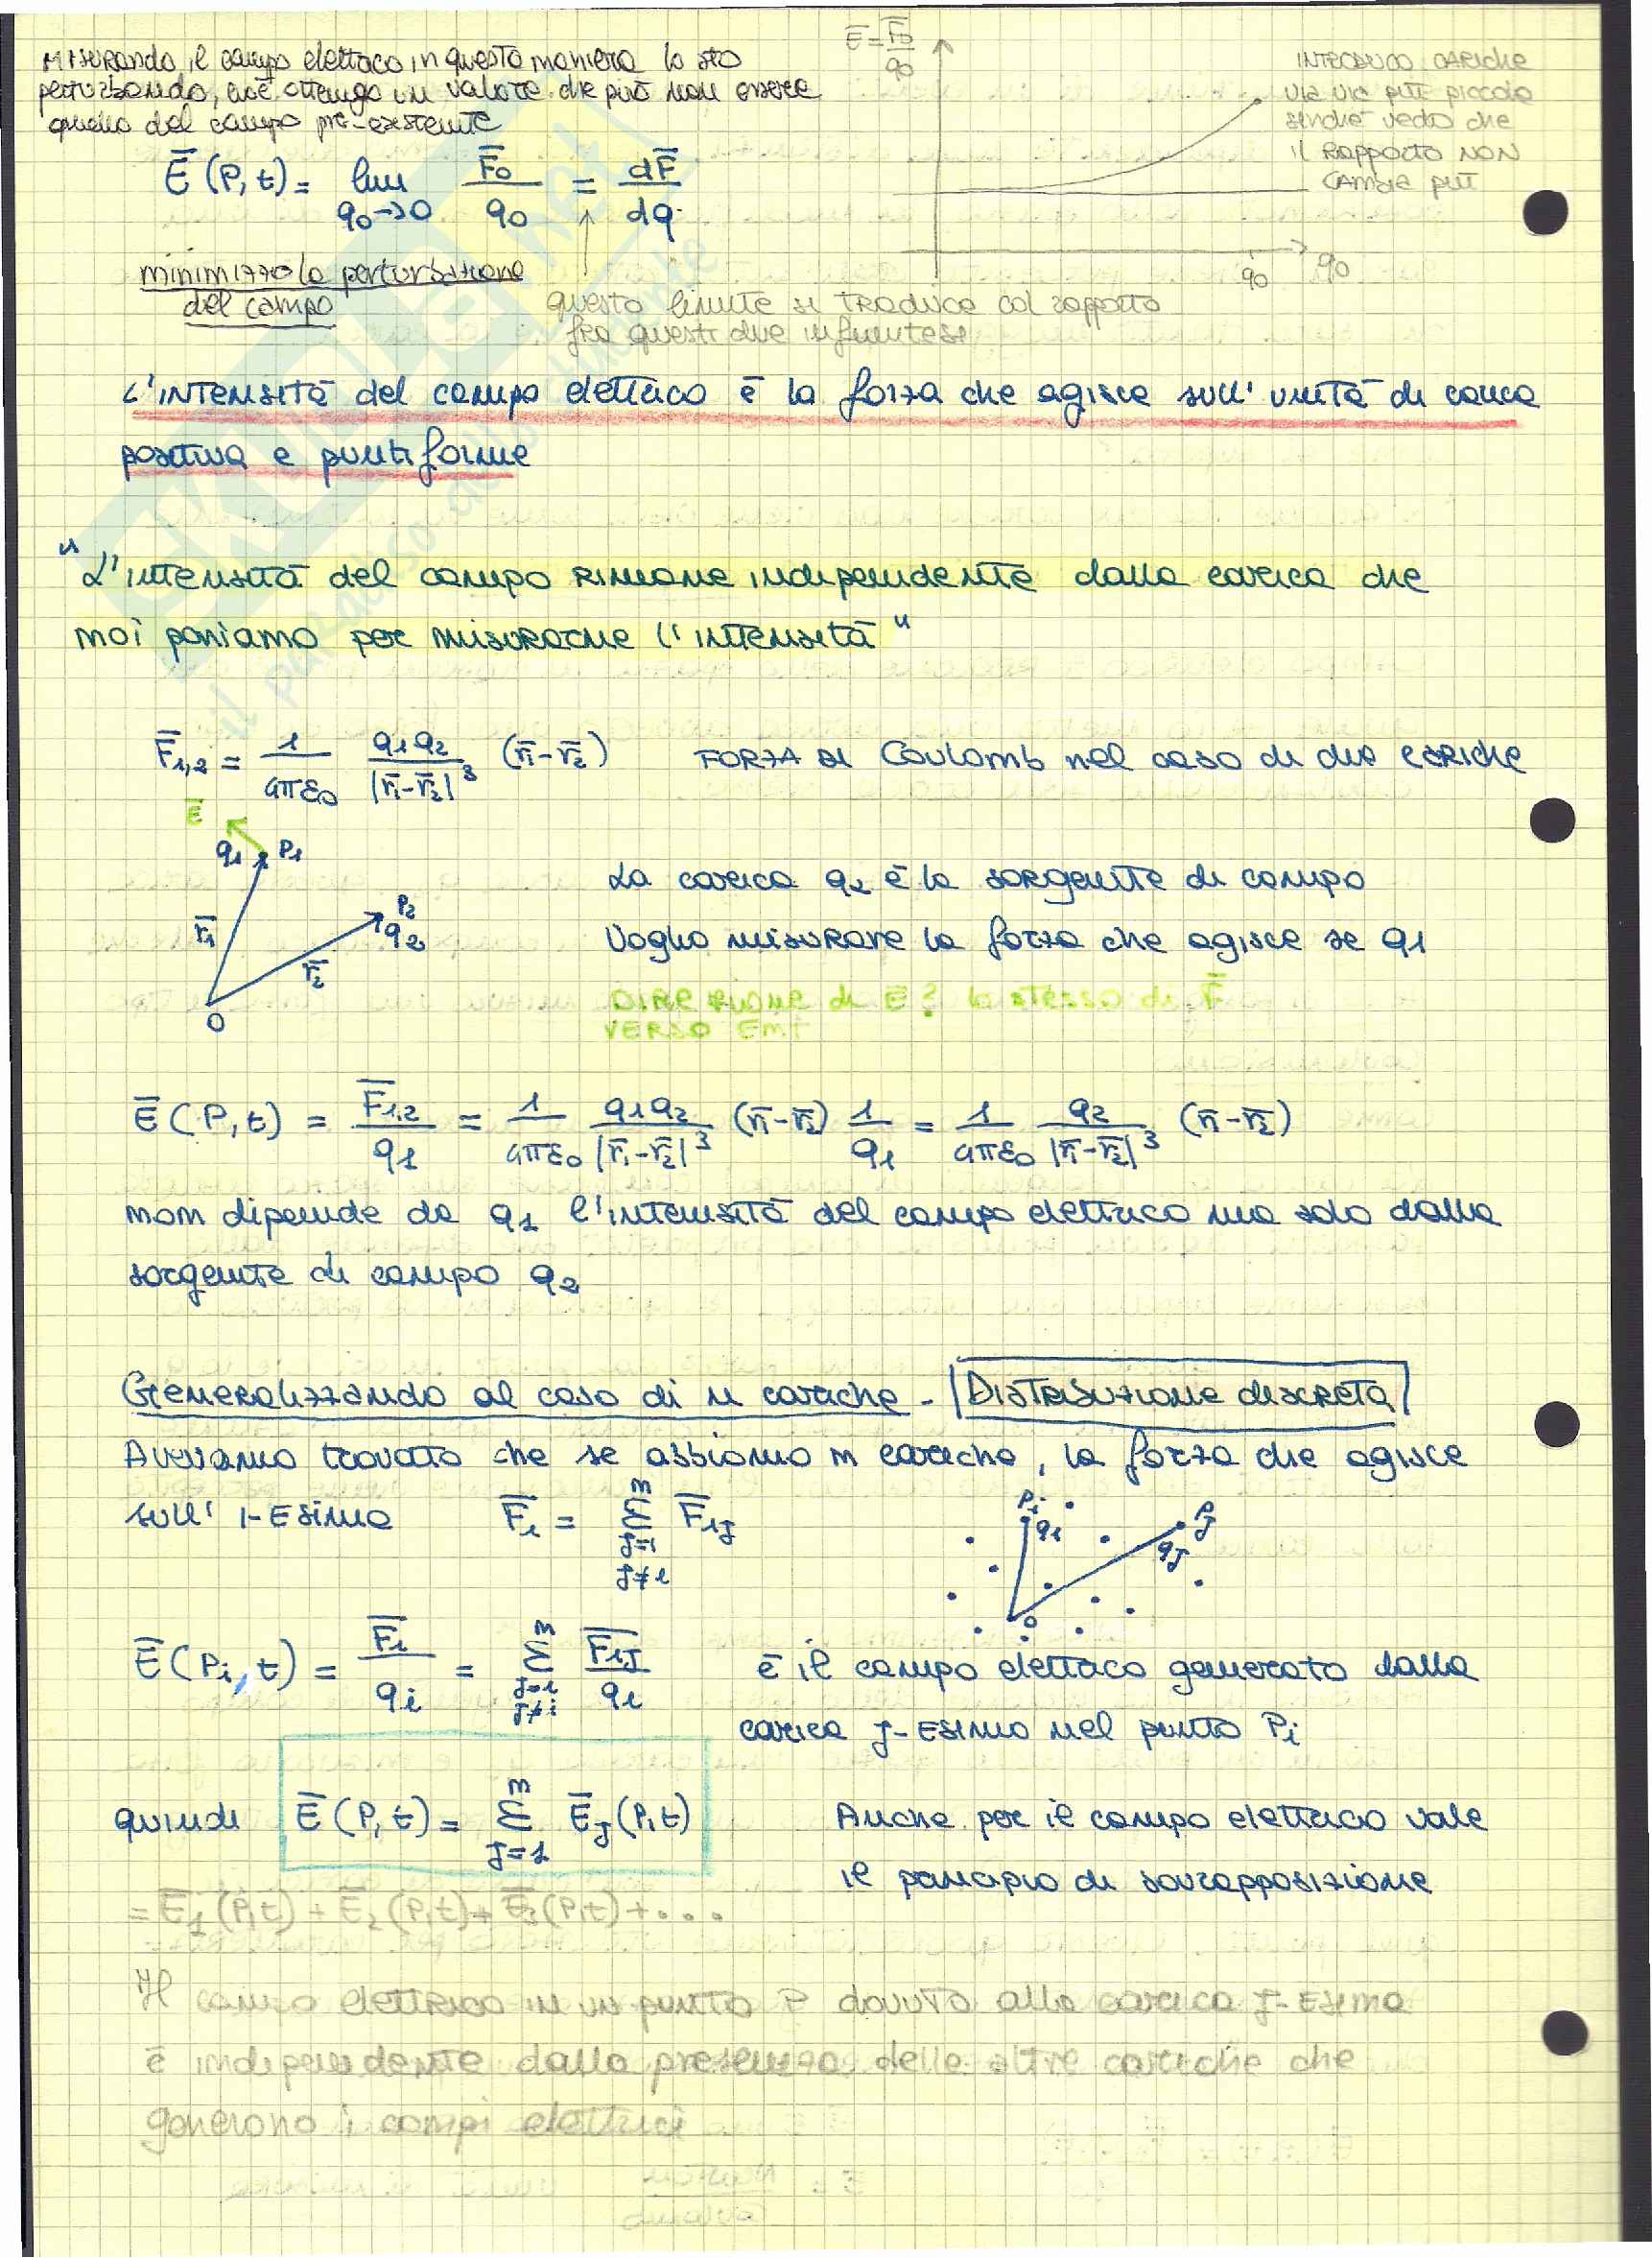 MISURANDO il campo elettrico in questa maniera lo sto
perturbando, cioè ottengo un valore che può non essere
quello del campo pre-esistente
Ē = F̄0/q0
INTRODUCO CARICHE
VIA VIA PIÙ piccole
sinché vedo che
il RAPPORTO NON
CAMBIA PIÙ
Ē (P, t) = lim q0→0 F̄0/q0 = dF̄/dq
q0 q0
minimizzo la perturbazione
del campo
questo limite si TRADUCE col rapporto
fra questi due infinitesi
L'INTENSITÀ del campo elettrico è la forza che agisce sull'unità di carica
positiva e puntiforme
"L'intensità del campo RIMANE indipendente dalla carica che
noi poniamo per misurarne l'intensità"
F̄1,2 = 1/4πε0 q1q2/|r̄1-r̄2|³ (r̄1-r̄2) FORZA di Coulomb nel caso di due cariche
Ē
q1 P1
P2
q2
r̄1
r̄2
O
La carica q2 è la sorgente di campo
Voglio misurare la forza che agisce se q1
DIREZIONE di Ē? la stessa di F̄
VERSO
Ē (P, t) = F̄1,2/q1 = 1/4πε0 q1q2/|r̄1-r̄2|³ (r̄1-r̄2) 1/q1 = 1/4πε0 q2/|r̄1-r̄2|³ (r̄1-r̄2)
non dipende da q1 l'intensità del campo elettrico ma solo dalla
sorgente di campo q2
Generalizzando al caso di n cariche - DISTRIBUZIONE discreta
Avevamo trovato che se abbiamo n cariche, la forza che agisce
sull' i-Esima F̄i = Σ n j=1 j≠i F̄ij
Pi
qi
Pj
qj
O
Ē (Pi, t) = F̄i/qi = Σ n j=1 j≠i F̄ij/qi è il campo elettrico generato dalla
carica J-Esima nel punto Pi
quindi Ē (P, t) = Σ n J=1 ĒJ (P,t) Anche per il campo elettrico vale
il principio di sovrapposizione
= Ē1 (P,t) + Ē2 (P,t) + Ē3 (P,t) + ...
Il campo elettrico in un punto P dovuto alla carica J-Esima
è indipendente dalla presenza delle altre cariche che
generono i campi elettrici